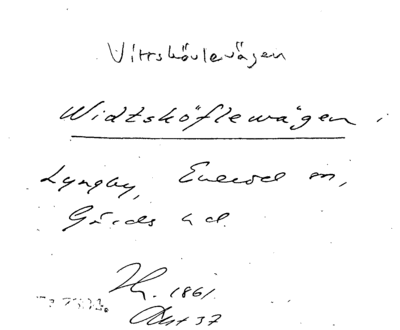 Vittskövlevägen
Widtsköflewägen
Lyngby, Everöd sn,
Gärds hd.
1861
37